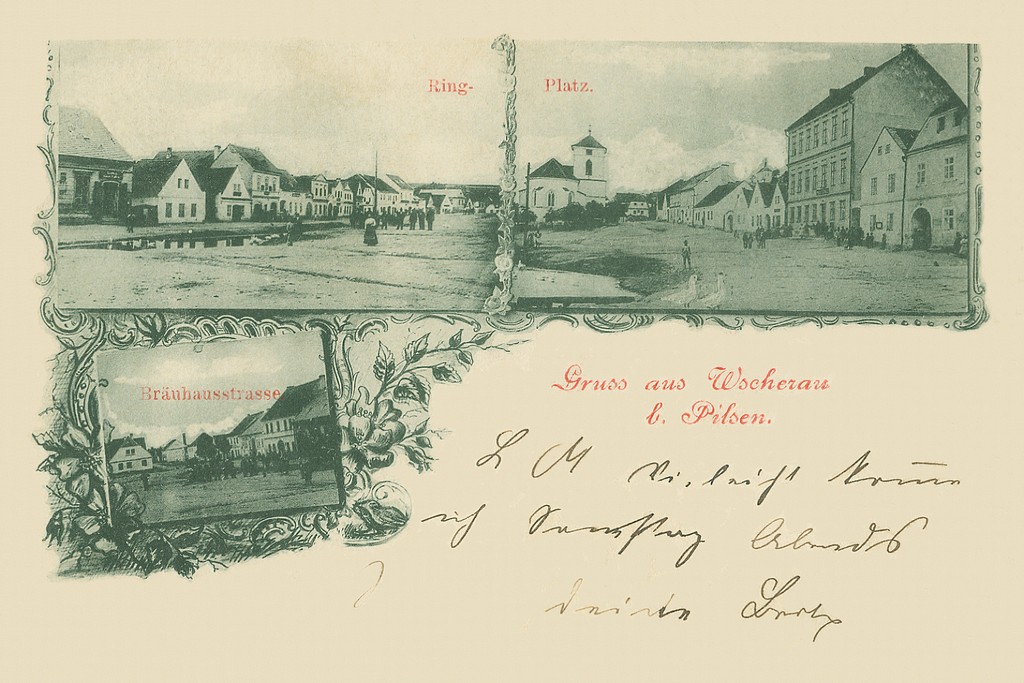 Ring-
Platz.
Bräuhausstrasse
Gruss aus Wscherau
b. Pilsen.
L M Vileicht komme
ich Samstag Abends
deine